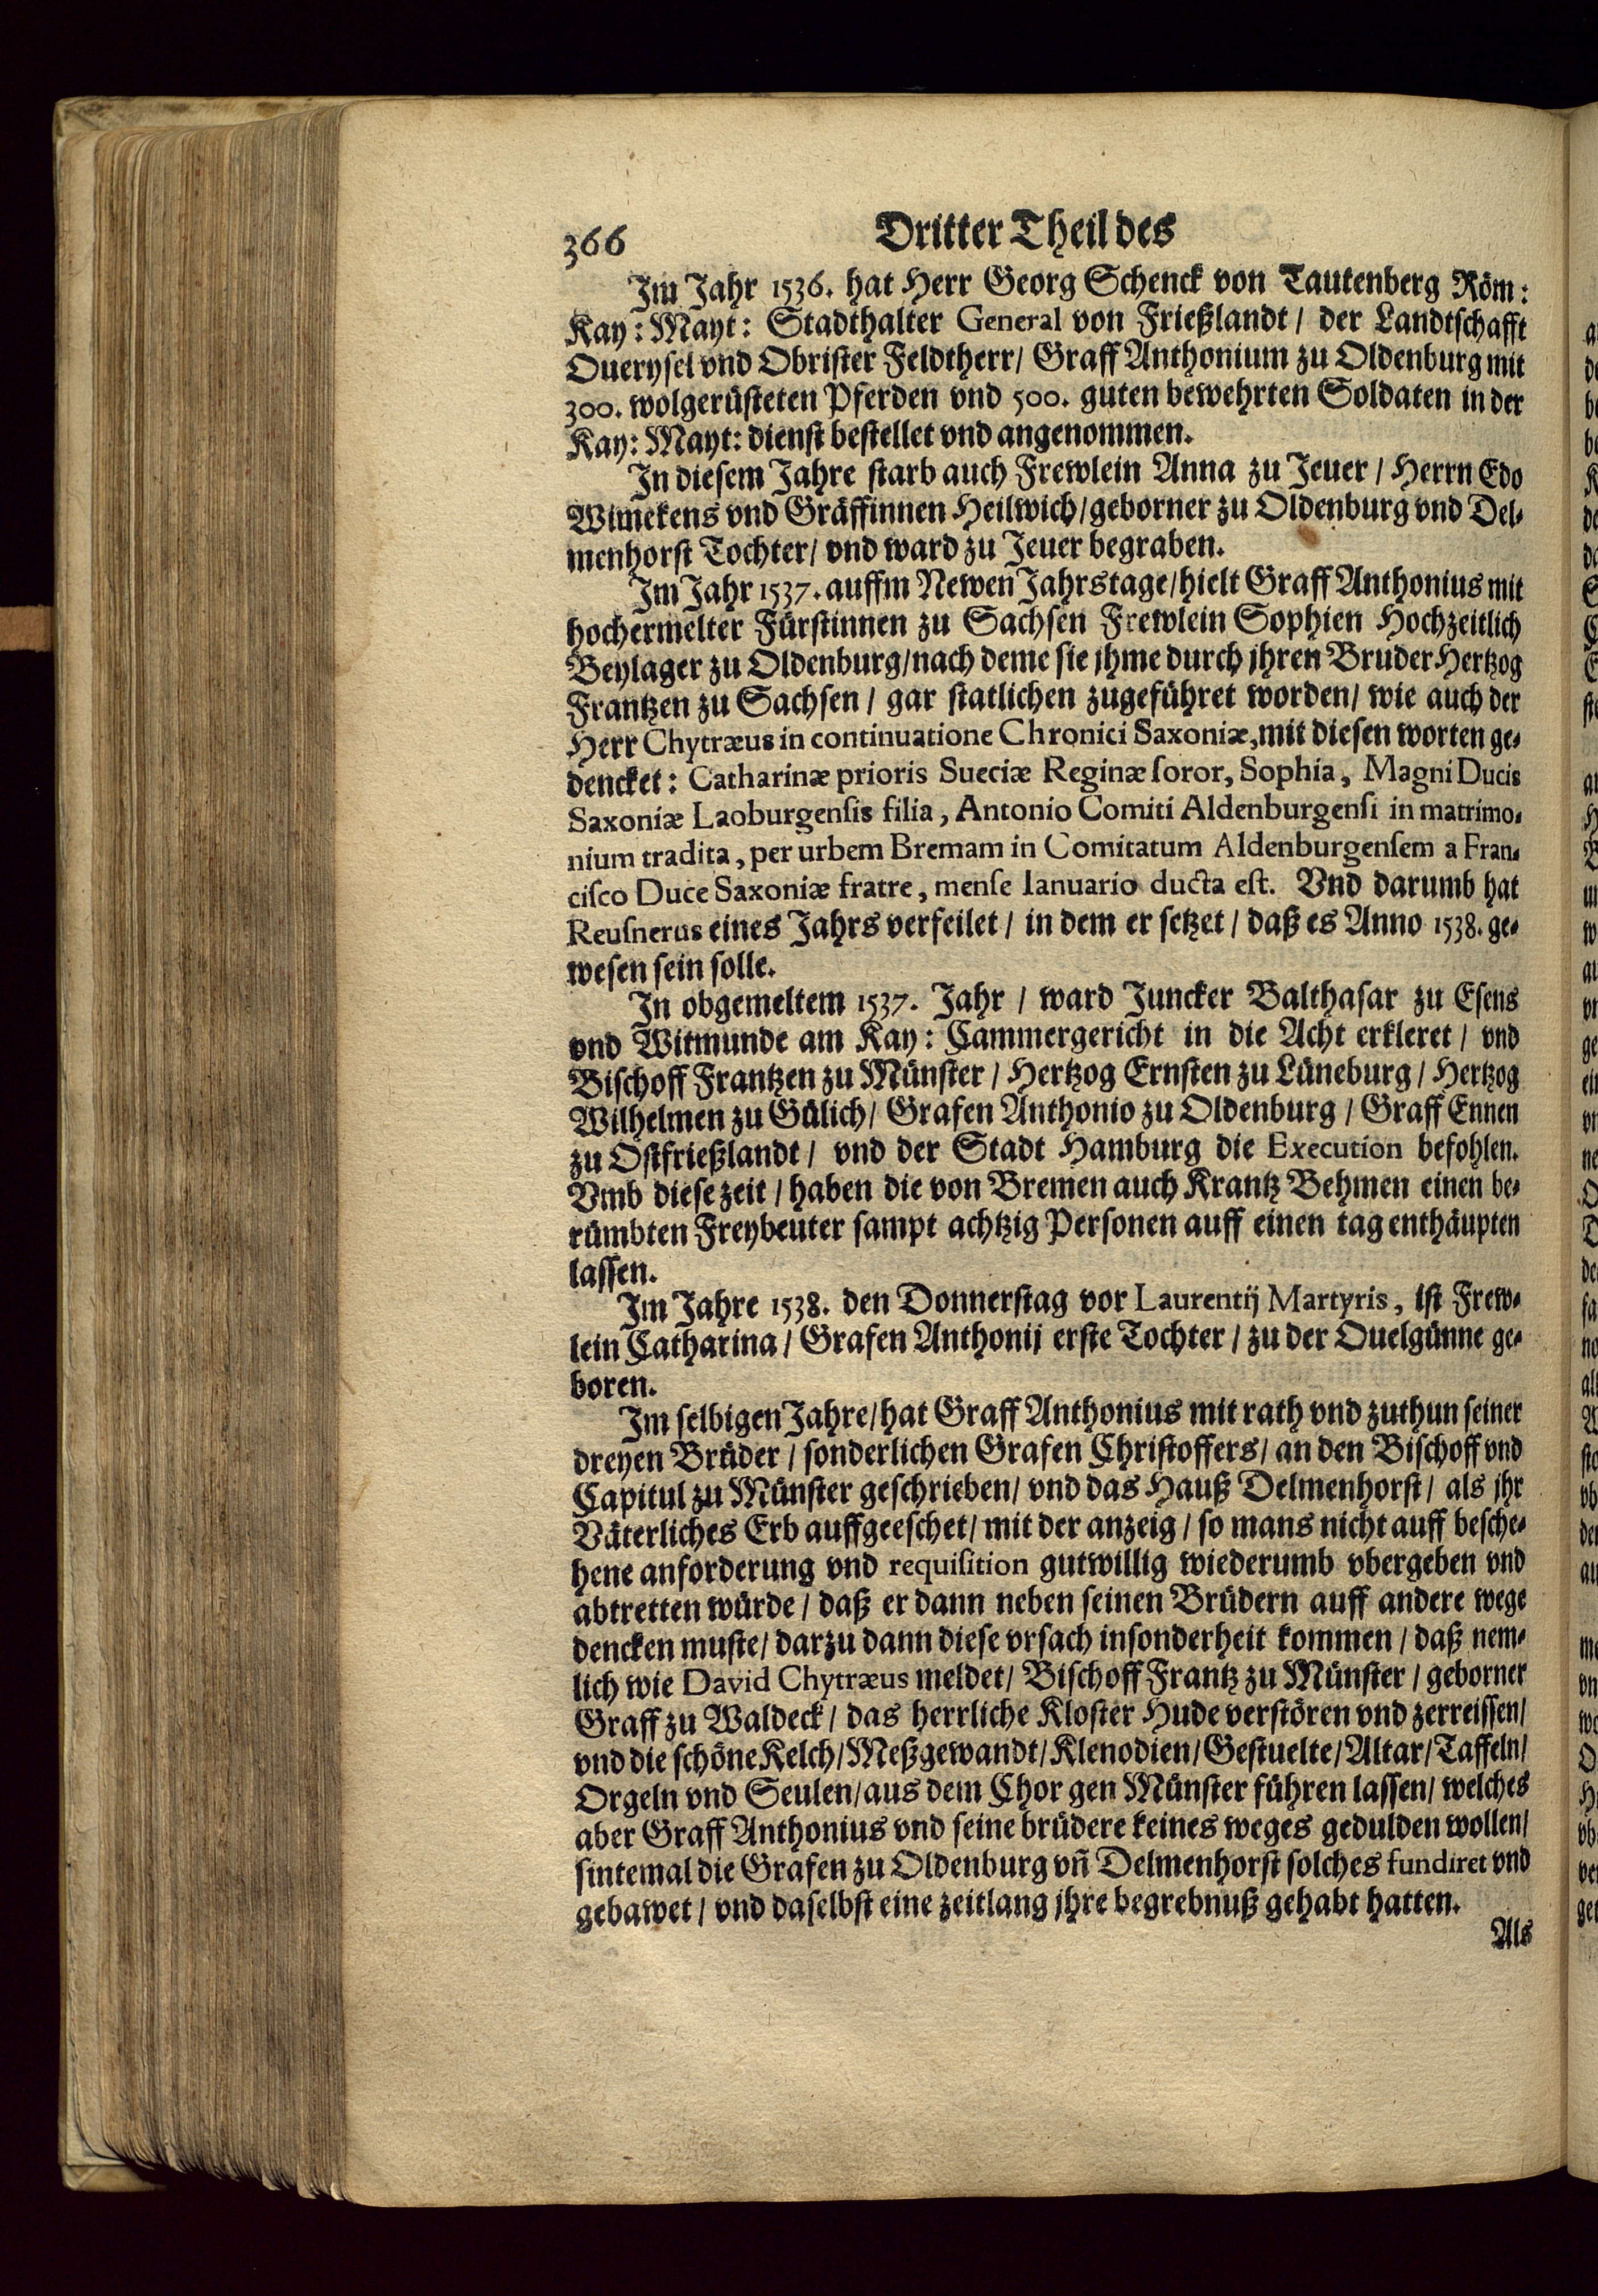 366 Dritter Theil des
Im Jahr 1536. hat Herr Georg Schenck von Tautenberg Röm:
Kay: Mayt: Stadthalter General von Frießlandt / der Landtschafft
Ouerysel vnd Obrister Feldtherr / Graff Anthonium zu Oldenburg mit
300. wolgerüsteten Pferden vnd 500. guten bewehrten Soldaten in der
Kay: Mayt: dienst bestellet vnd angenommen.
In diesem Jahre starb auch Frewlein Anna zu Jeuer / Herrn Edo
Wimekens vnd Gräffinnen Heilwich / geborner zu Oldenburg vnd Del-
menhorst Tochter / vnd ward zu Jeuer begraben.
Im Jahr 1537. auffm Newen Jahrstage / hielt Graff Anthonius mit
hochermelter Fürstinnen zu Sachsen Frewlein Sophien Hochzeitlich
Beylager zu Oldenburg / nach deme sie jhme durch jhren Bruder Hertzog
Frantzen zu Sachsen / gar statlichen zugeführet worden / wie auch der
Herr Chytræus in continuatione Chronici Saxoniæ, mit diesen worten ge-
dencket: Catharinæ prioris Sueciæ Reginæ soror, Sophia, Magni Ducis
Saxoniæ Laoburgensis filia, Antonio Comiti Aldenburgensi in matrimo-
nium tradita, per urbem Bremam in Comitatum Aldenburgensem a Fran-
cisco Duce Saxoniæ fratre, mense Ianuario ducta est. Vnd darumb hat
Reusnerus eines Jahrs verfeilet / in dem er setzet / daß es Anno 1538. ge-
wesen sein solle.
In obgemeltem 1537. Jahr / ward Juncker Balthasar zu Esens
vnd Witmunde am Kay: Cammergericht in die Acht erkleret / vnd
Bischoff Frantzen zu Münster / Hertzog Ernsten zu Lüneburg / Hertzog
Wilhelmen zu Gülich / Grafen Anthonio zu Oldenburg / Graff Ennen
zu Ostfrießlandt / vnd der Stadt Hamburg die Execution befohlen.
Vmb diese zeit / haben die von Bremen auch Krantz Behmen einen be-
rümbten Freybeuter sampt achtzig Personen auff einen tag enthäupten
lassen.
Im Jahre 1538. den Donnerstag vor Laurentij Martyris, ist Frew-
lein Catharina / Grafen Anthonij erste Tochter / zu der Ouelgünne ge-
boren.
Im selbigen Jahre / hat Graff Anthonius mit rath vnd zuthun seiner
dreyen Brüder / sonderlichen Grafen Christoffers / an den Bischoff vnd
Capitul zu Münster geschrieben / vnd das Hauß Delmenhorst / als jhr
Väterliches Erb auffgeeschet / mit der anzeig / so mans nicht auff besche-
hene anforderung vnd requisition gutwillig wiederumb vbergeben vnd
abtretten würde / daß er dann neben seinen Brüdern auff andere wege
dencken muste / darzu dann diese vrsach insonderheit kommen / daß nem-
lich wie David Chytræus meldet / Bischoff Frantz zu Münster / geborner
Graff zu Waldeck / das herrliche Kloster Hude verstören vnd zerreissen /
vnd die schöne Kelch / Meßgewandt / Klenodien / Gestuelte / Altar / Taffeln /
Orgeln vnd Seulen / aus dem Chor gen Münster führen lassen / welches
aber Graff Anthonius vnd seine brüdere keines weges gedulden wollen /
sintemal die Grafen zu Oldenburg vñ Delmenhorst solches fundiret vnd
gebawet / vnd daselbst eine zeitlang jhre begrebnuß gehabt hatten.
Als